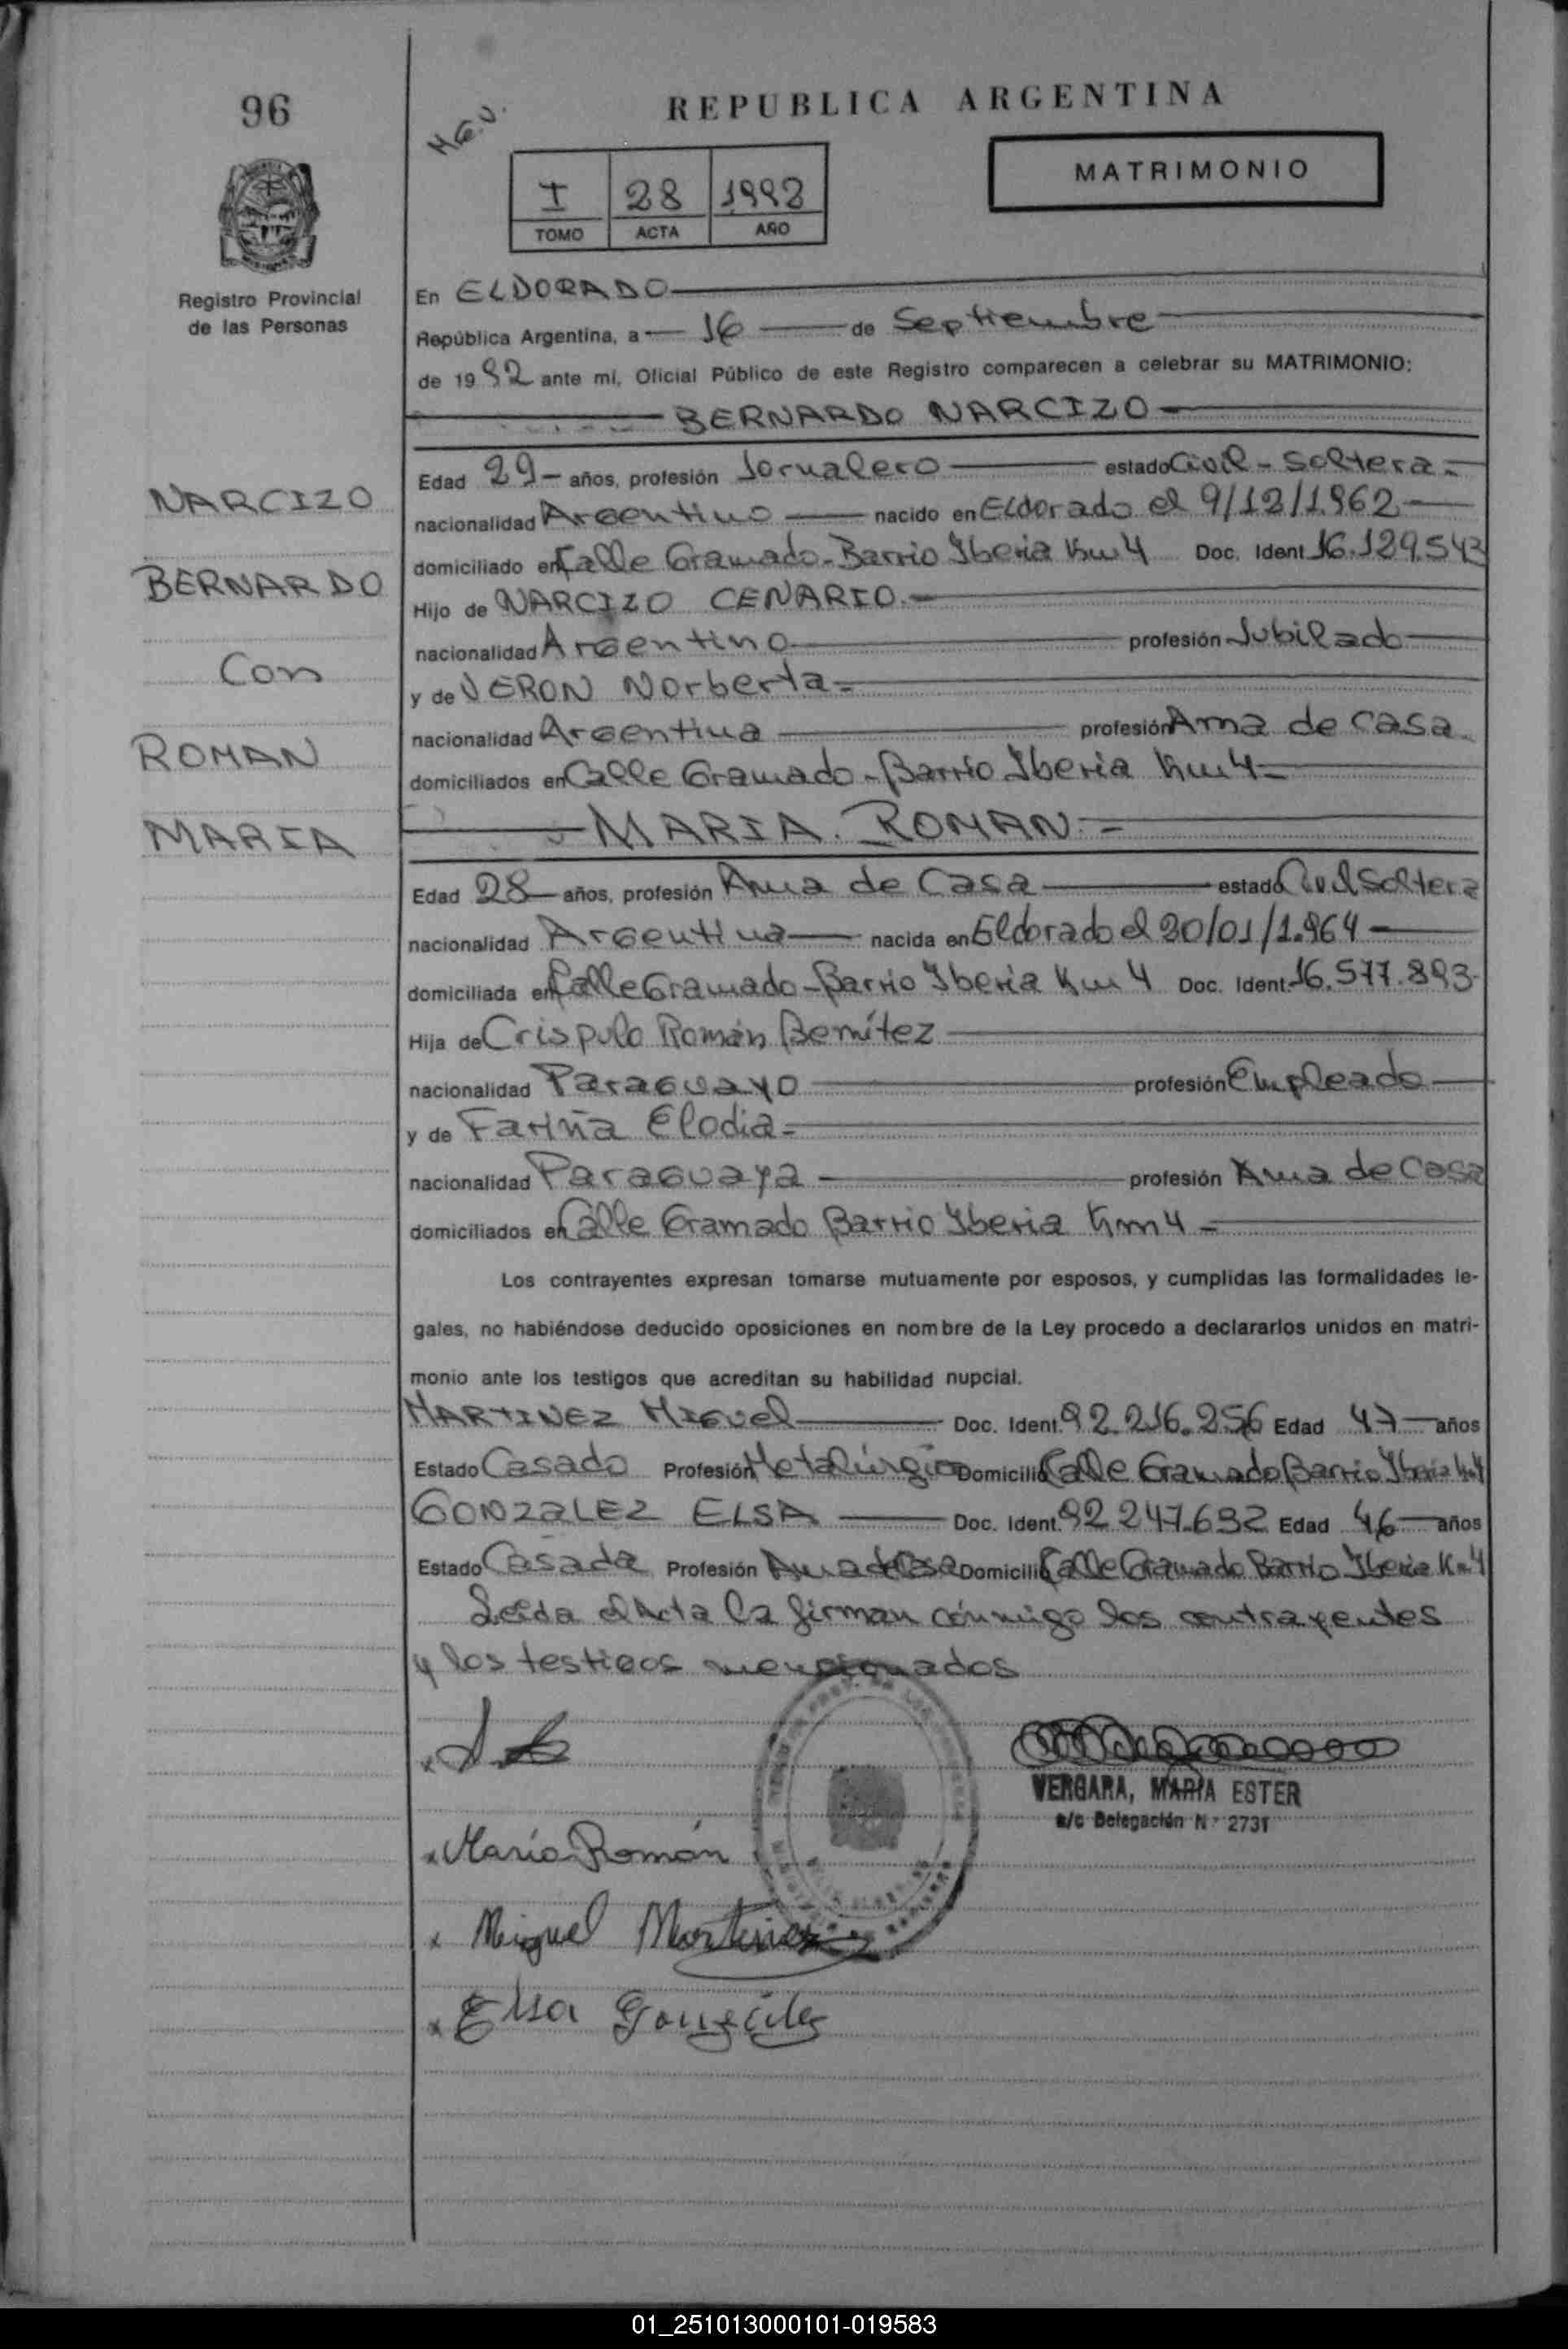 96
REPUBLICA ARGENTINA
M.G.V.
MATRIMONIO
I 28 1992
TOMO ACTA AÑO
Registro Provincial
de las Personas
En ELDORADO
República Argentina, a 16 de Septiembre
de 1992 ante mí, Oficial Público de este Registro comparecen a celebrar su MATRIMONIO:
BERNARDO NARCIZO
NARCIZO
BERNARDO
Con
ROMAN
MARIA
Edad 29 años, profesión Jornalero estado Civil - Soltera
nacionalidad Argentino nacido en Eldorado el 9/12/1.962
domiciliado en Calle Gramado - Barrio Iberia Km 4 Doc. Ident. 16.129.543
Hijo de NARCIZO CENARIO.
nacionalidad Argentino profesión Jubilado
y de VERON Norberta
nacionalidad Argentina profesión Ama de casa.
domiciliados en Calle Gramado - Barrio Iberia Km 4
MARIA. ROMAN.
Edad 28 años, profesión Ama de Casa estado Civil Soltera
nacionalidad Argentina nacida en Eldorado el 20/01/1.964
domiciliada en Calle Gramado - Barrio Iberia Km 4 Doc. Ident. 16.577.893
Hija de Crispulo Román Benítez
nacionalidad Paraguayo profesión Empleado
y de Fariña Elodia
nacionalidad Paraguaya profesión Ama de Casa
domiciliados en Calle Gramado Barrio Iberia Km 4
Los contrayentes expresan tomarse mutuamente por esposos, y cumplidas las formalidades le-
gales, no habiéndose deducido oposiciones en nombre de la Ley procedo a declararlos unidos en matri-
monio ante los testigos que acreditan su habilidad nupcial.
MARTINEZ MIGUEL Doc. Ident. 92.216.256 Edad 47 años
Estado Casado Profesión Metalúrgico Domicilio Calle Gramado Barrio Iberia Km 4
GONZALEZ ELSA Doc. Ident. 92 247.692 Edad 46 años
Estado Casada Profesión Ama de Casa Domicilio Calle Gramado Barrio Iberia Km 4
Leida el Acta la firman conmigo los contrayentes
y los testigos mencionados
VERGARA, MARIA ESTER
a/c Delegación N° 2731
x María Román
x Miguel Martinez
x Elsa González
01_251013000101-019583